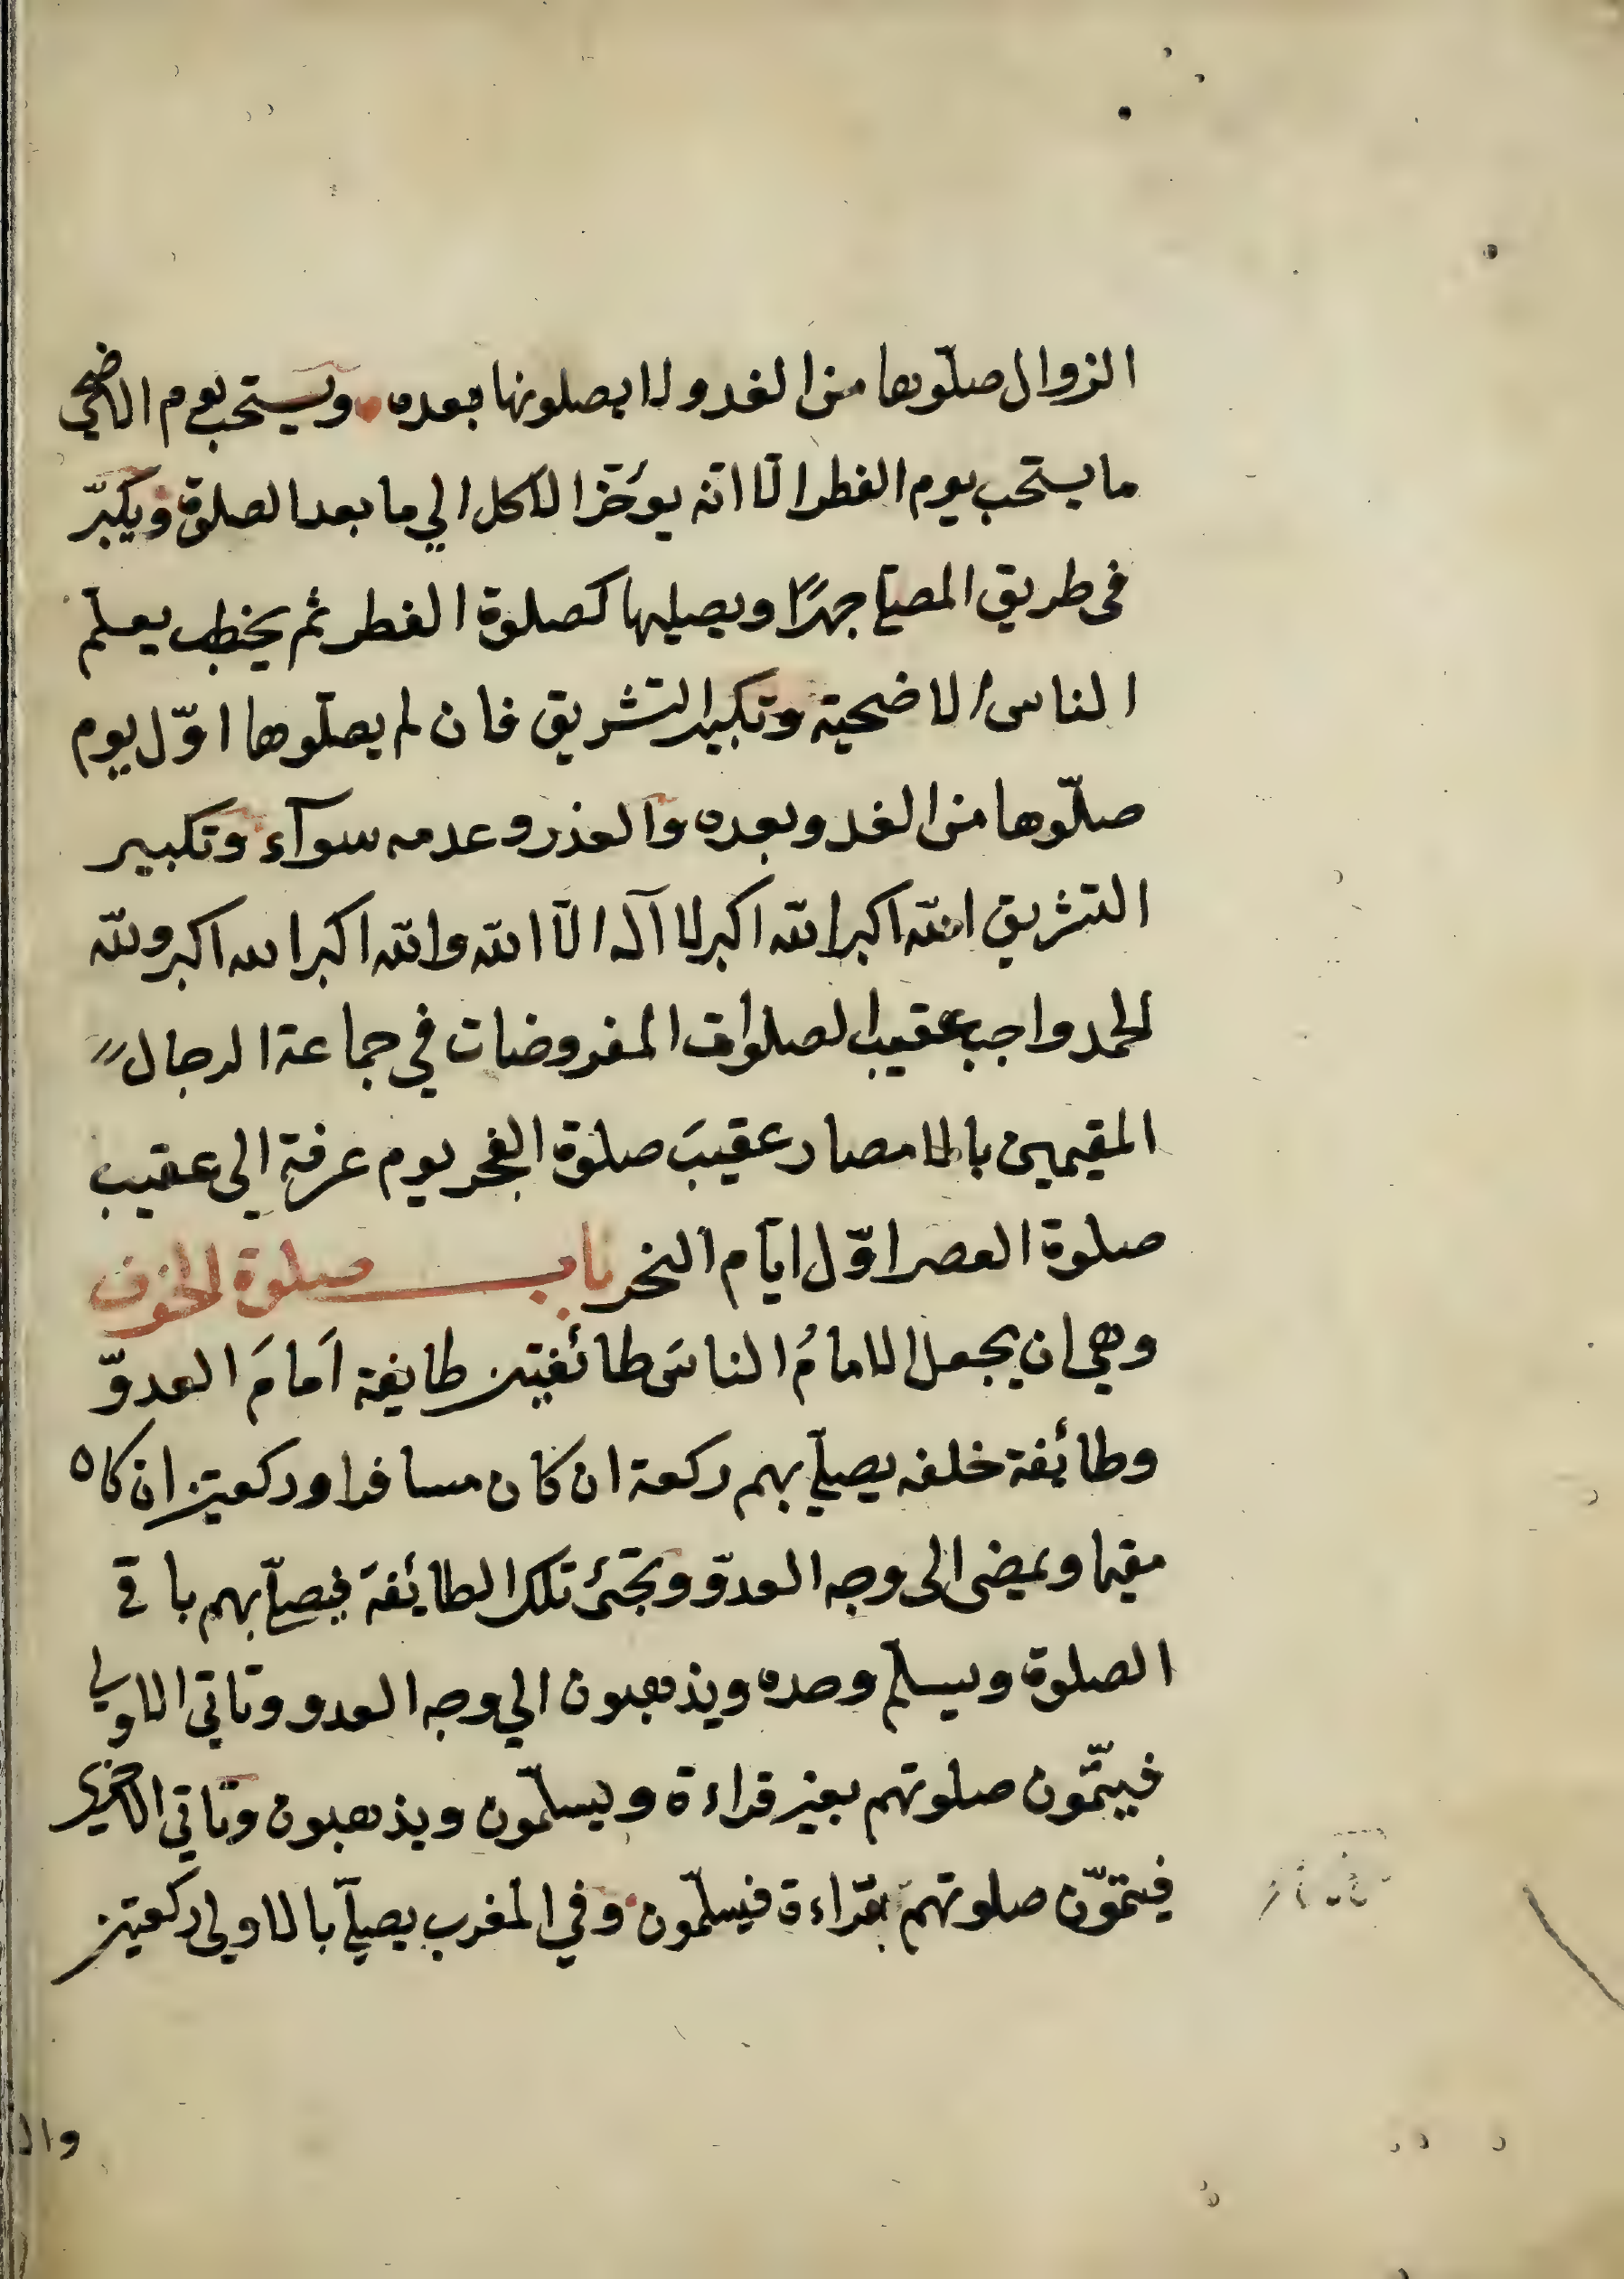 الزوال صلّوها من الغد ولا يصلونها بعده ويستحب يوم الاضحى
ما يستحب يوم الفطر الّا انّه يوَخّر الاكل الي ما بعد الصلوة ويكبّر
فى طريق المصلّي جهرًا ويصليها كصلوة الفطر ثم يخطب يعلّم
الناس الاضحية وتكبير التشريق فان لم يصلّوها اوّل يوم
صلّوها من الغد وبعده والعذر وعدمه سوآء وتكبير
التشريق اللّه اكبر اللّه اكبر لا آله الّا اللّه واللّه اكبر الله اكبر وللّه
الحمد واجب عقيب الصلوات المفروضات في جماعة الرجال
المقيمين بالامصار عقيبَ صلوة الفجر يوم عرفة الى عقيب
صلوة العصر اوّل ايّام النحر باب صلوة الخوف
وهي ان يجعل الامامُ الناسَ طائفتين طايفة اَمامَ العدوّ
وطائفة خلفه يصلّي بهم ركعة ان كان مسافرا وركعتين ان كان
مقيما ويمضى الى وجه العدوّ وتجئ تلك الطائفة فيصلّي بهم باقى
الصلوة ويسلّم وحده ويذهبون الي وجه العدو وتاتى الاولي
فيتمّون صلوتهم بغير قراءة ويسلّمون ويذهبون وتاتي الاخرى
فيتموّن صلوتهم بقراءة فيسلّمون وفي المغرب يصلّي بالاولى ركعتين